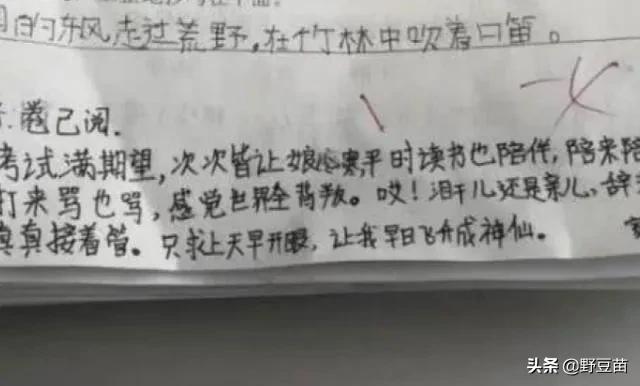 的东风走过荒野,在竹林中吹着口笛。
卷已阅.
考试满期望,次次皆让娘心寒,平时读书也陪伴,陪来陪
打来骂也骂,感觉世界全背叛。哎!泪干儿还是亲儿,辞
真真接着管。只求上天早开眼,让我早日飞升成神仙。
头条 @野豆苗